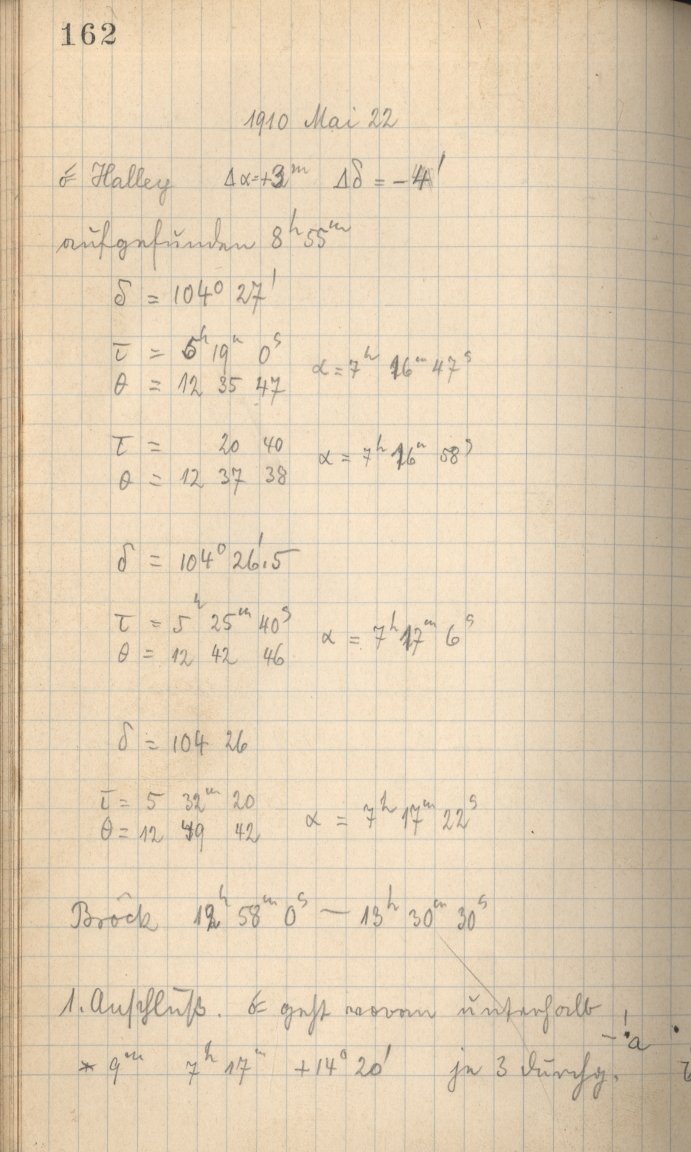 162
1910 Mai 22
☄ Halley Δα=+3ᵐ Δδ = -4'
aufgefunden 8ʰ 55ᵐ
δ = 104° 27'
τ = 5ʰ 19ᵐ 0ˢ
θ = 12 35 47 α = 7ʰ 16ᵐ 47ˢ
τ = 20 40
θ = 12 37 38 α = 7ʰ 16ᵐ 58ˢ
δ = 104° 26'.5
τ = 5ʰ 25ᵐ 40ˢ
θ = 12 42 46 α = 7ʰ 17ᵐ 6ˢ
δ = 104 26
τ = 5 32ᵐ 20
θ = 12 49 42 α = 7ʰ 17ᵐ 22ˢ
Brock 12ʰ 58ᵐ 0ˢ — 13ʰ 30ᵐ 30ˢ
1. Anschluß. ☄ geht voran unterhalb
a
* 9ᵐ 7ʰ 17ᵐ +14° 20' je 3 Durchg.